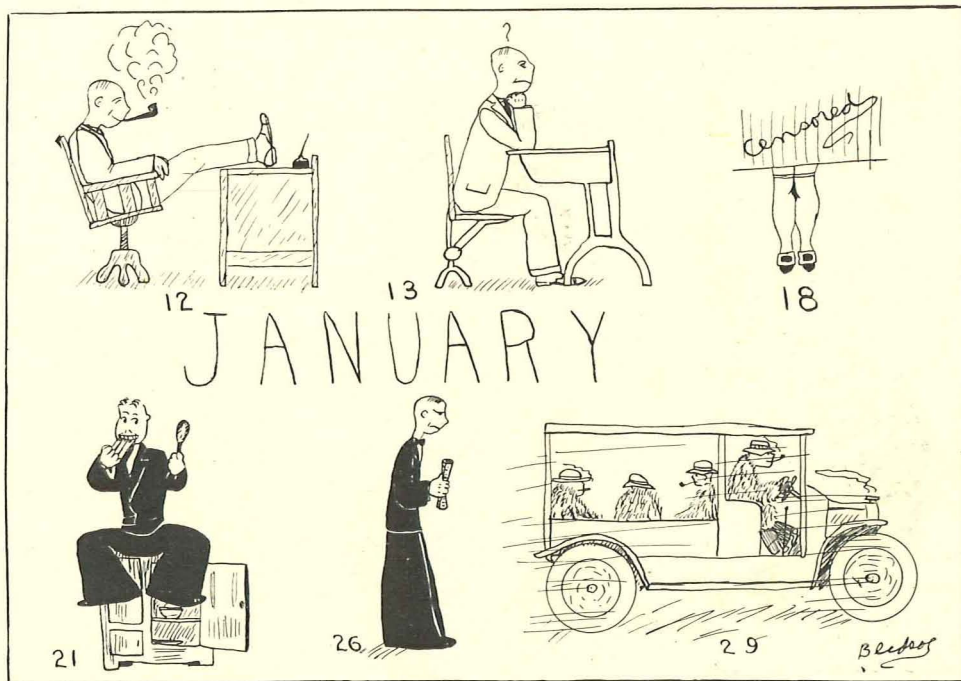 ?
censored
12
13
18
JANUARY
21
26
29